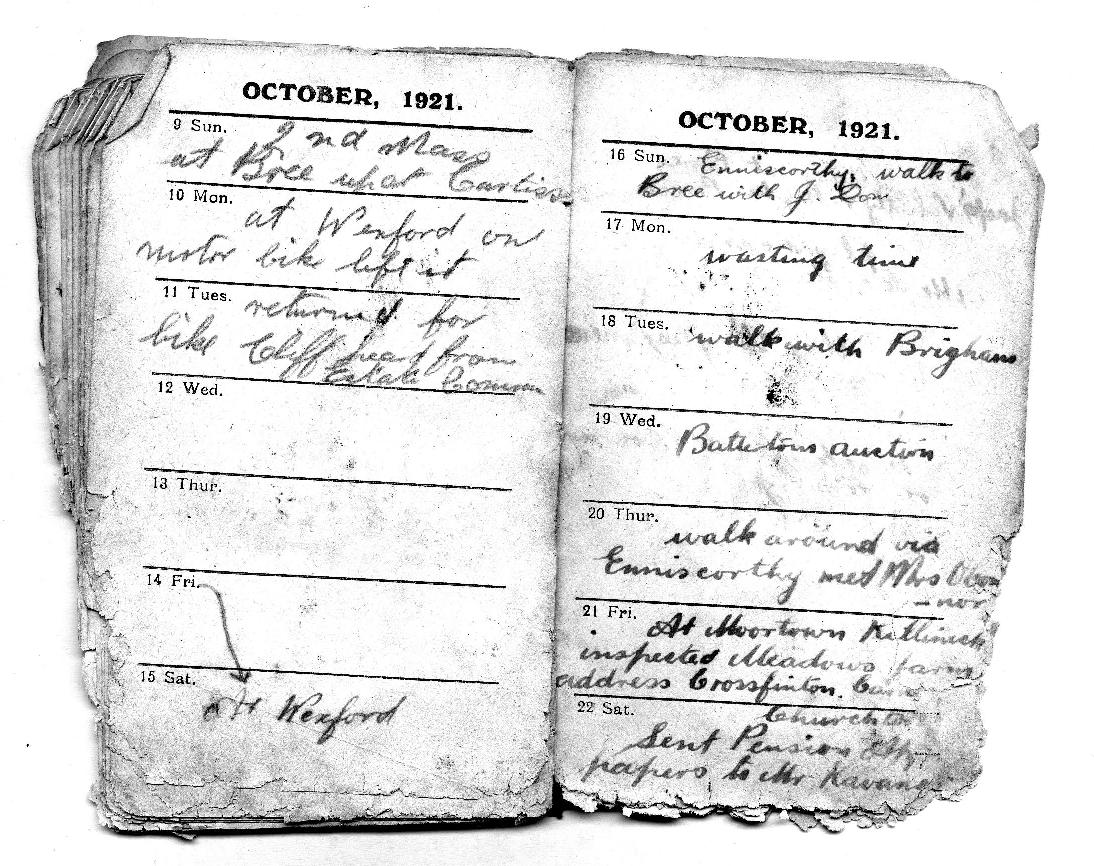 OCTOBER, 1921.
9 Sun. 2nd Mass
at Bree
10 Mon.
at Wexford on
motor bike left it
11 Tues. returned for
bike Cliff from
Estate
12 Wed.
13 Thur.
14 Fri.
15 Sat.
At Wexford
OCTOBER, 1921.
16 Sun. Enniscorthy, walk to
Bree with J.
17 Mon.
wasting time
18 Tues. walk with
19 Wed.
auction
20 Thur.
walk around via
Enniscorthy met Mrs
21 Fri.
At Moortown
inspected Meadows farm
address
22 Sat.
Sent Pension
papers to Mr